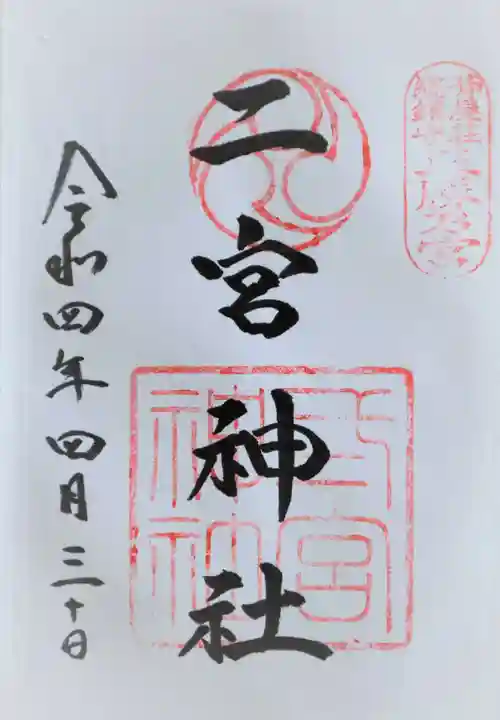 二宮神社
令和四年四月三十日
二宮
神社